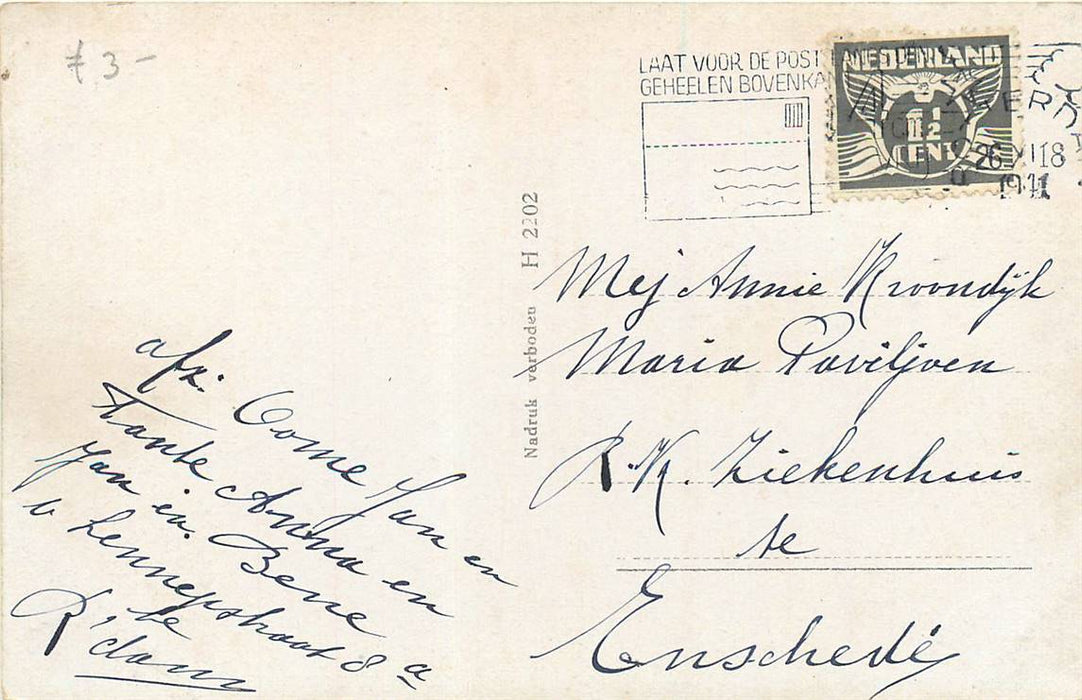 £ 3 -
LAAT VOOR DE POST
GEHEELEN BOVENKA
NEDERLAND
1½
CENT
26 VII 18
1941
Nadruk verboden H 2202
Mej Annie Kroondijk
Maria Paviljoen
R.K. Ziekenhuis
te
Enschedé
afz. Oome Jan en
tante Anna en
Jan en Bene
v Lennepstraat 8 a
te
R'dam